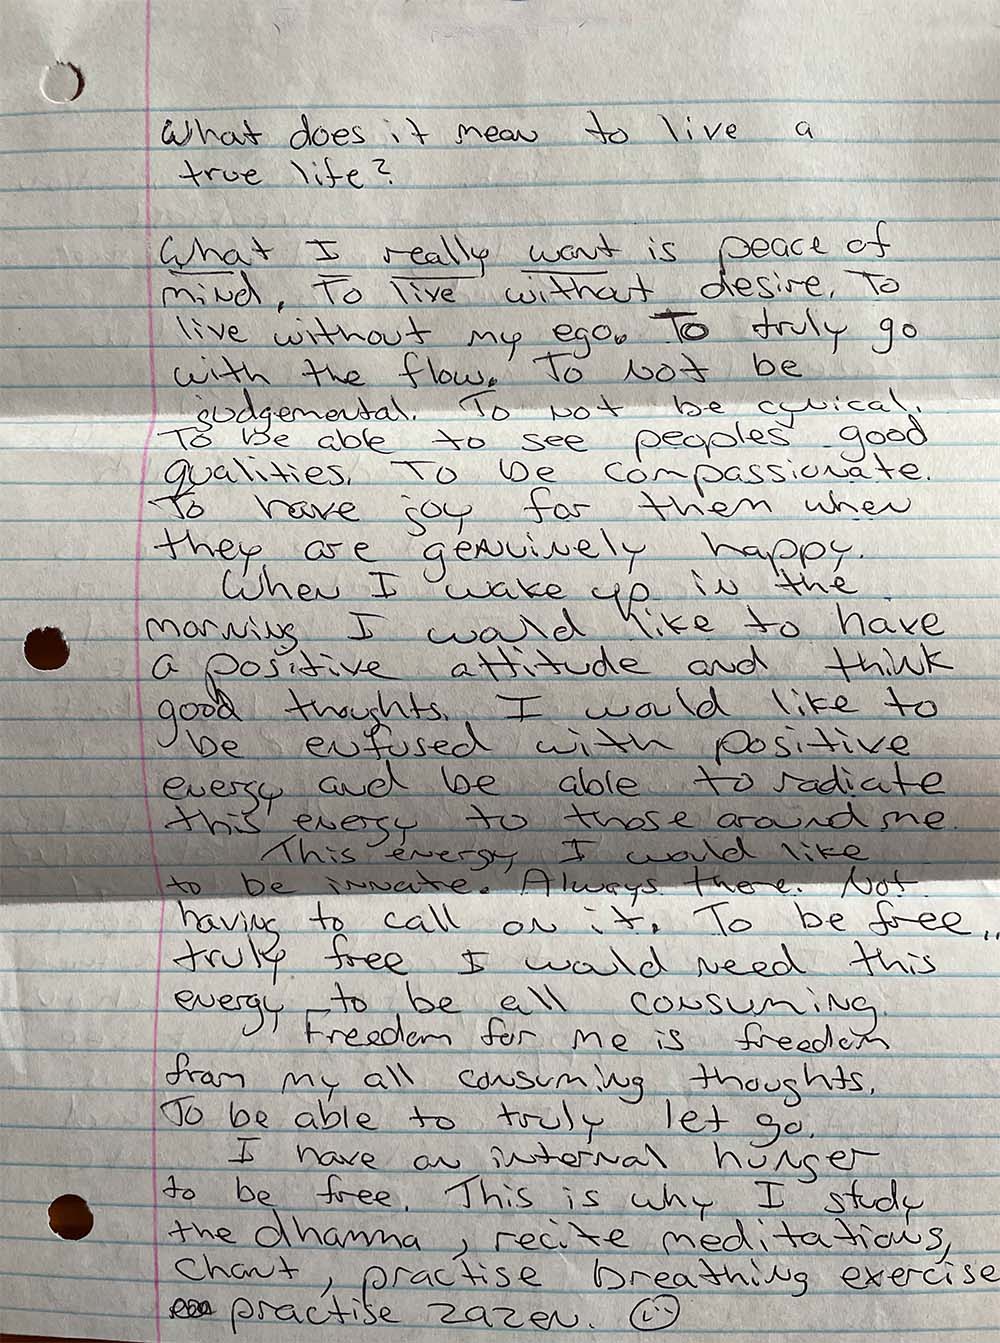 What does it mean to live a
true life?
What I really want is peace of
mind. To live without desire. To
live without my ego. To truly go
with the flow. To not be
judgemental. To not be cynical.
To be able to see peoples good
qualities. To be compassionate.
To have joy for them when
they are genuinely happy.
When I wake up in the
morning I would like to have
a positive attitude and think
good thoughts. I would like to
be enfused with positive
energy and be able to radiate
this energy to those around me.
This energy I would like
to be innate. Always there. Not
having to call on it. To be free..
truly free I would need this
energy to be all consuming.
Freedom for me is freedom
from my all consuming thoughts.
To be able to truly let go.
I have an internal hunger
to be free. This is why I study
the dhamma, recite meditations,
chant, practise breathing exercise
practise zazen. ☺